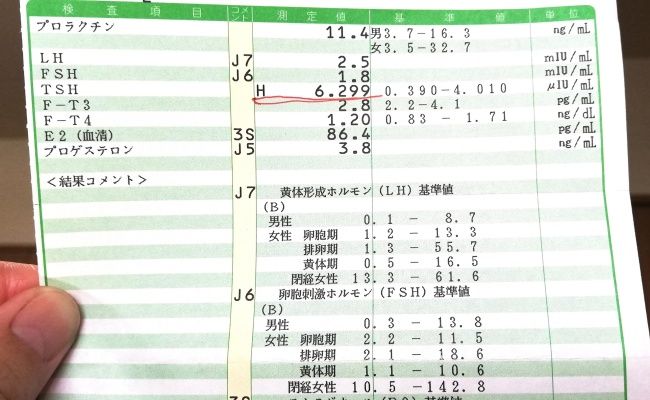 検査項目 コメント 測定値 基準値 単位
プロラクチン 11.4 男3.7-16.3 ng/mL
女3.5-32.7
LH J7 2.5 mIU/mL
FSH J6 1.8 mIU/mL
TSH H 6.299 0.390-4.010 μIU/mL
F-T3 2.8 2.2-4.1 pg/mL
F-T4 1.20 0.83 - 1.71 ng/dL
E2(血清) 3S 86.4 pg/mL
プロゲステロン J5 3.8 ng/mL
<結果コメント>
J7 黄体形成ホルモン(LH)基準値
(B)
男性 0.1 - 8.7
女性 卵胞期 1.2 - 13.3
排卵期 1.3 - 55.7
黄体期 0.5 - 16.5
閉経女性 13.3 - 61.6
J6 卵胞刺激ホルモン(FSH)基準値
(B)
男性 0.3 - 13.8
女性 卵胞期 2.2 - 11.5
排卵期 2.1 - 18.6
黄体期 1.1 - 10.6
閉経女性 10.5 -142.8